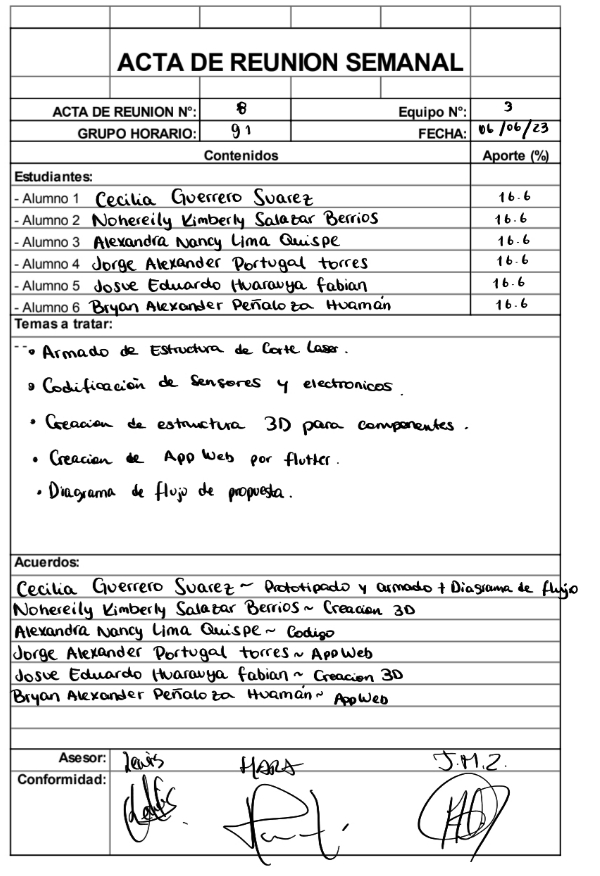 ACTA DE REUNION SEMANAL
ACTA DE REUNION N°: 8 Equipo N°: 3
GRUPO HORARIO: 91 FECHA: 06/06/23
Contenidos Aporte (%)
Estudiantes:
- Alumno 1 Cecilia Guerrero Suarez 16.6
- Alumno 2 Nohereily Kimberly Salazar Berrios 16.6
- Alumno 3 Alexandra Nancy Lima Quispe 16.6
- Alumno 4 Jorge Alexander Portugal torres 16.6
- Alumno 5 Josue Eduardo Huaravya fabian 16.6
- Alumno 6 Bryan Alexander Peñaloza Huamán 16.6
Temas a tratar:
• Armado de Estructura de Corte Laser.
• Codificación de Sensores y electronicos.
• Creacion de estructura 3D para componentes.
• Creacion de App Web por flutter.
• Diagrama de flujo de propuesta.
Acuerdos:
Cecilia Guerrero Suarez ~ Prototipado y armado + Diagrama de flujo
Nohereily Kimberly Salazar Berrios ~ Creacion 3D
Alexandra Nancy Lima Quispe ~ Codigo
Jorge Alexander Portugal torres ~ App Web
Josue Eduardo Huaravya fabian ~ Creacion 3D
Bryan Alexander Peñaloza Huamán ~ App Web
Asesor: Lewis MARA J.M.Z.
Conformidad: